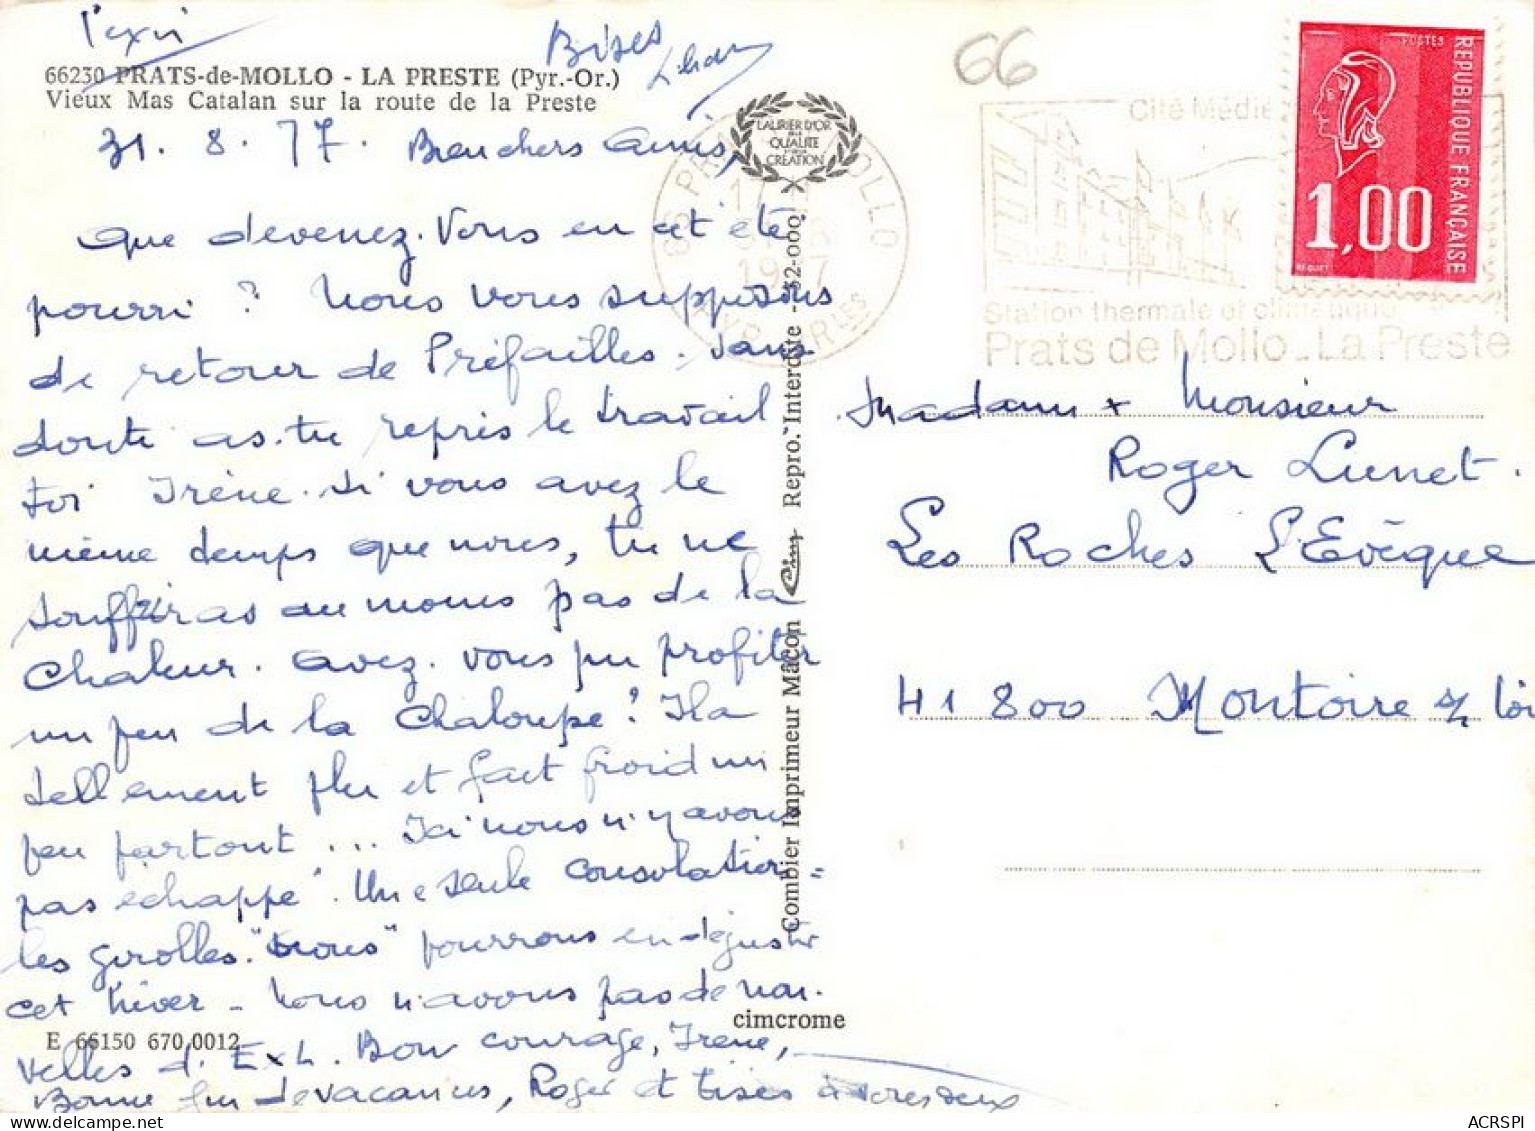 Bises
66230 PRATS-de-MOLLO - LA PRESTE (Pyr.-Or.)
Vieux Mas Catalan sur la route de la Preste
31. 8. 77. Bien chers amis,
que devenez-vous en cet été
pourri ? Nous vous supposons
de retour de Préfailles. Sans
doute as-tu repris le travail
toi Irène. Si vous avez le
même temps que nous, tu ne
souffriras au moins pas de la
chaleur. Avez-vous pu profiter
un peu de la Chaloupe ? Il a
tellement plu et fait froid un
peu partout ... Ici nous n'y avons
pas échappé. Une seule consolation =
les girolles. "Nous" pourrons en déguster
cet hiver - Nous n'avons pas de nou-
velles d. E x L. Bon courage, Irène,
Bonne fin de vacances, Roger et bises à vous deux
E 66150 670.0012
cimcrome
LAURIER D'OR
DE LA
QUALITÉ
CREATION
Combier Imprimeur Mâcon Cim Repro. Interdite - 52-000
66
66 PRATS MOLLO
PYR. ORLES
Cité Médié
Station thermale et climatique
Prats de Mollo - La Preste
POSTES
REPUBLIQUE FRANÇAISE
1,00
BEQUET
Madame + Monsieur
Roger Lunet.
Les Roches L'Evêque
41 800 Montoire s/ Loi
ACRSPI